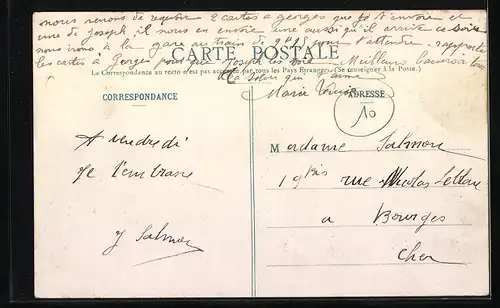 nous venons de recevoir 2 cartes a georges que je t'envoie et
une de Joseph il nous en envoie une aussi qu'il arrive ce soir
nous irons à la gare au train de pour l'attendre rapporte
les cartes à Georges pour que Joseph les voie Meilleurs baisers a tous
CARTE POSTALE
La Correspondance au recto n'est pas acceptée par tous les Pays Etrangers. (Se renseigner à la Poste.)
Ta soeur qui t'aime
Maria
CORRESPONDANCE
ADRESSE
10
A vendredi
Je t'embrasse
J Salmon
Madame Salmon
19 bis rue Nicolas Leblanc
a Bourges
Cher